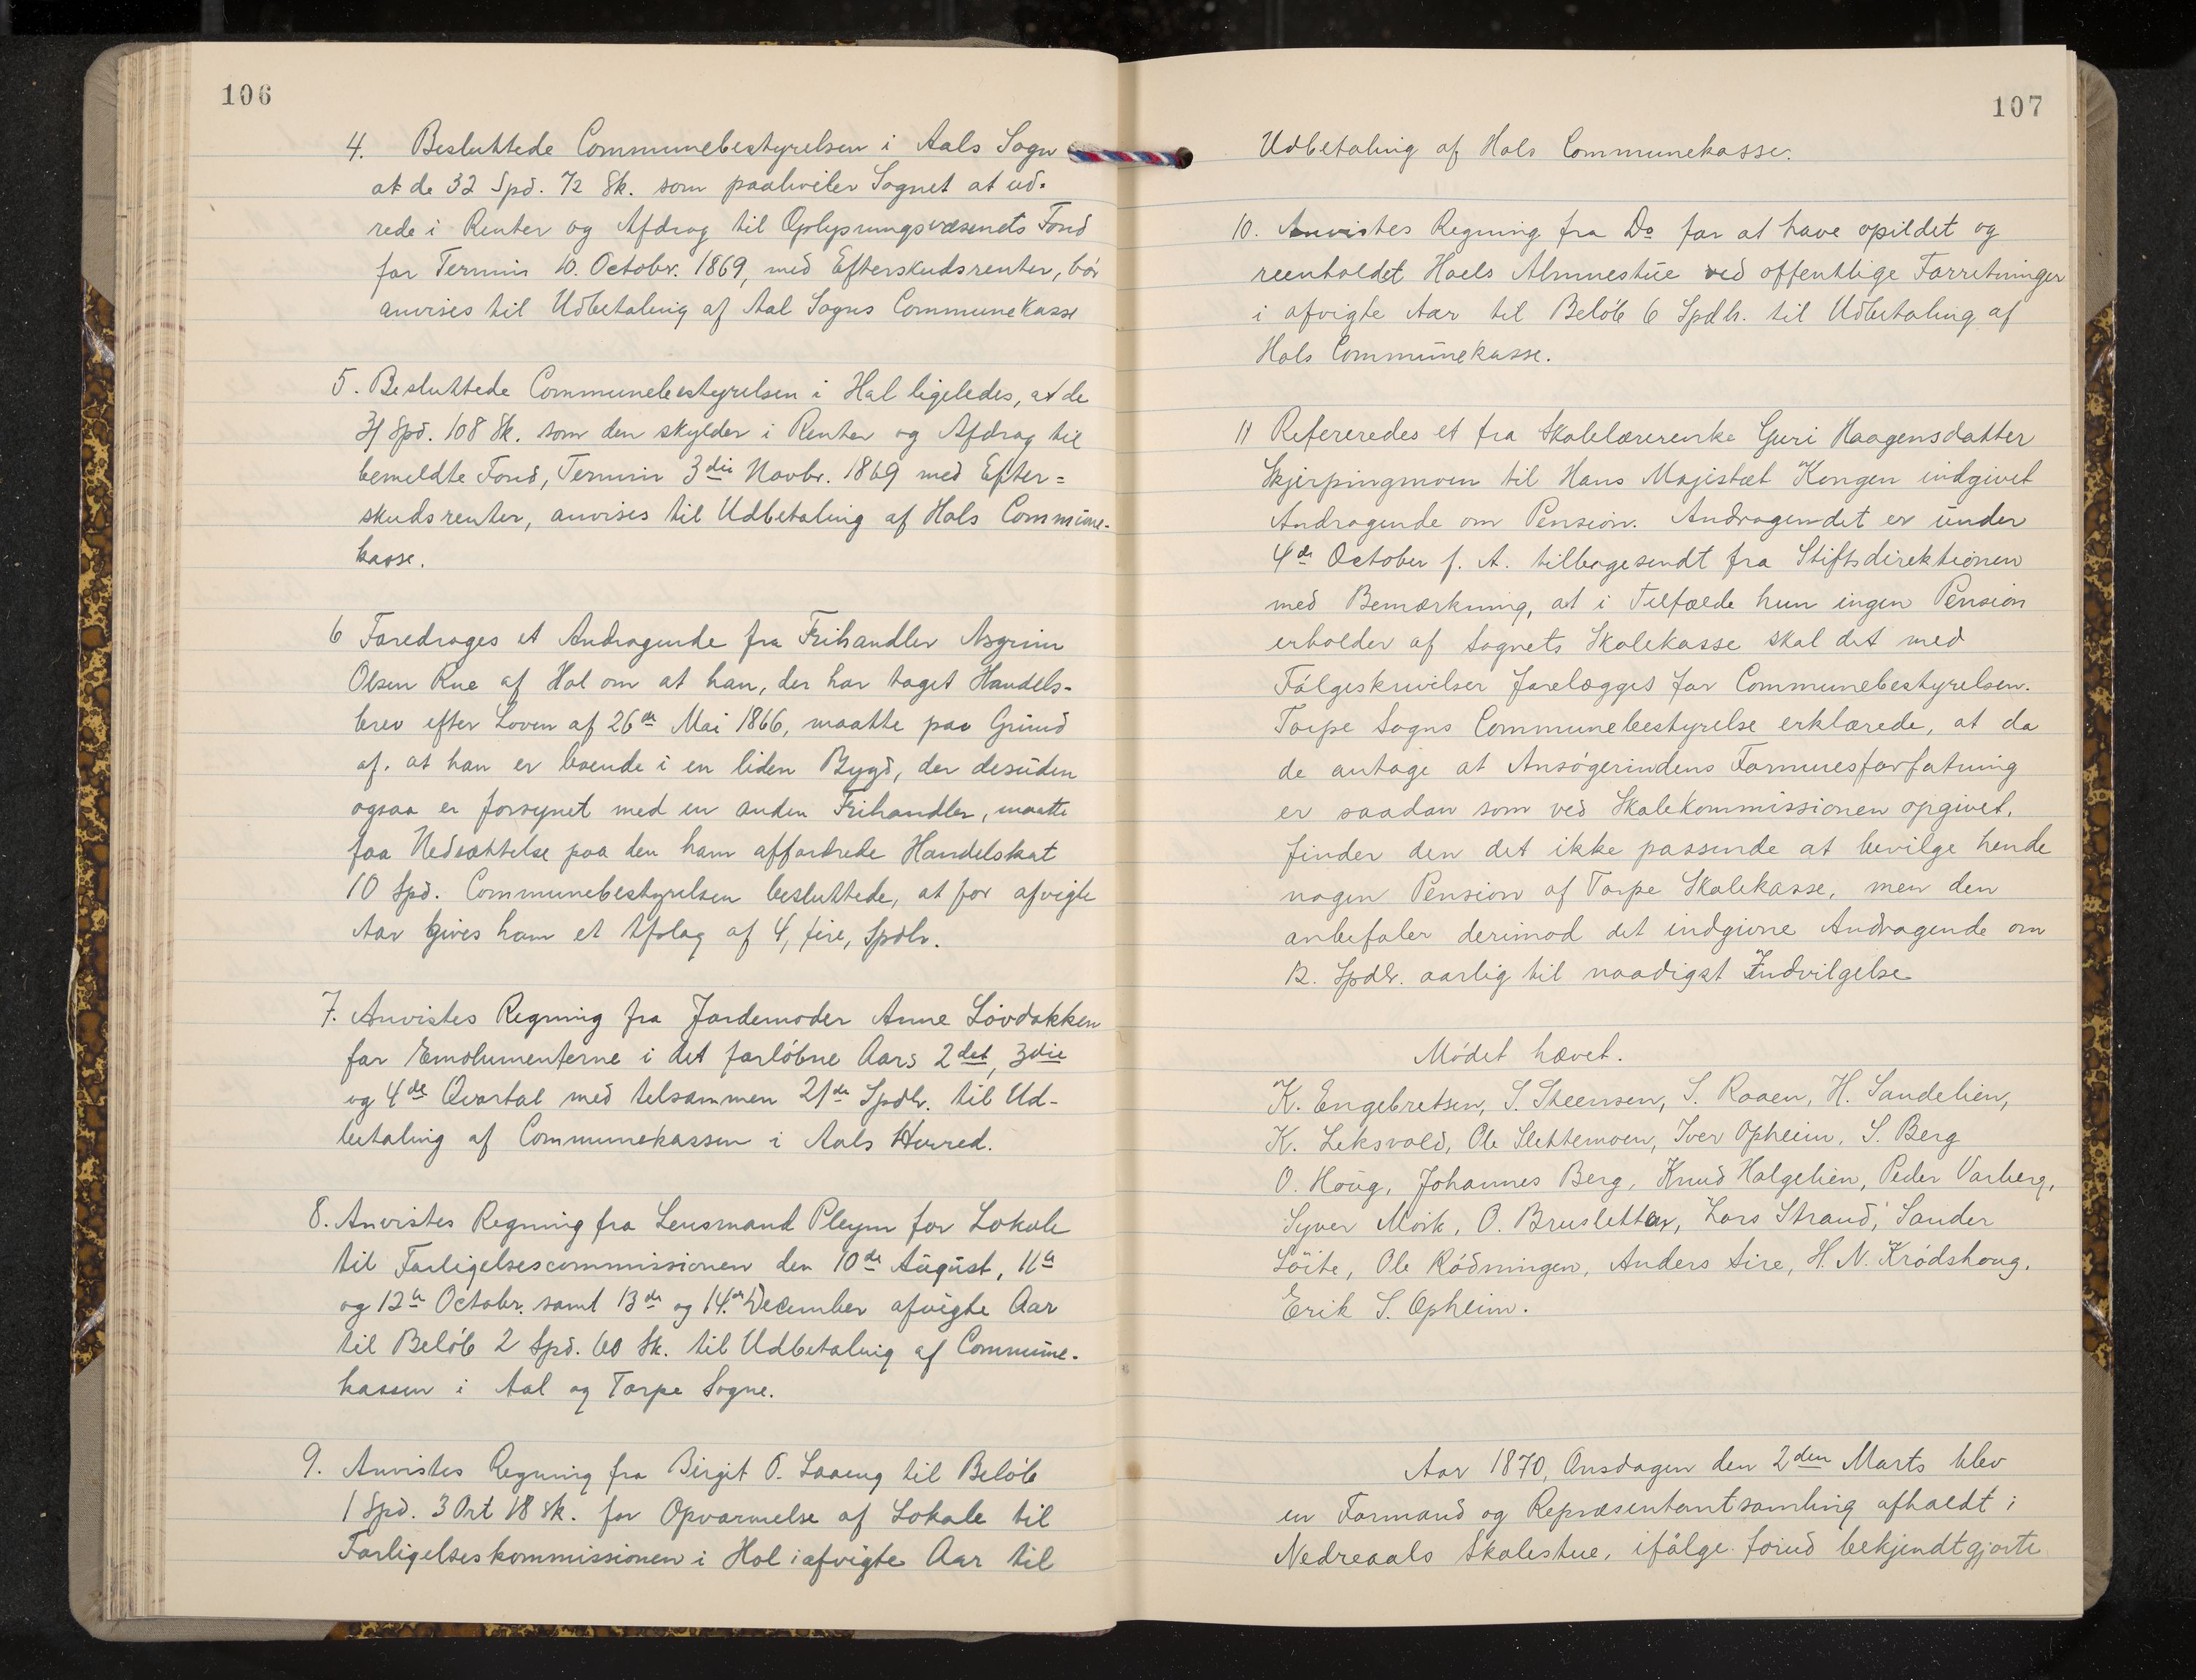 106
4. Besluttede Communebestyrelsen i Aals Sogn
at de 32 Spd. 72 Sk. som paahviler Sognet at ud-
rede i Renter og Afdrag til Oplysningsvæsenets Fond
for Termin 10. Octobr. 1869, med Efterskudsrenter, bör
anvises til Udbetaling af Aal Sogns Communekasse
5. Besluttede Communebestyrelsen i Hal ligeledes, at de
31 Spd. 108 Sk. som den skylder i Renter og Afdrag til
bemeldte Fond, Termin 3die Novbr. 1869 med Efter=
skudsrenter, anvises til Udbetaling af Hols Commune-
kasse.
6 Foredroges et Andragende fra Frihandler Asgrim
Olsen Rue af Hol om at han, der har taget Handels-
brev efter Loven af 26de Mai 1866, maatte paa Grund
af. at han er boende i en liden Bygd, der desuden
ogsaa er forsynet med en anden Frihandler, maatte
faa Nedsættelse paa den ham affordrede Handelskat
10 Spd. Communebestyrelsen besluttede, at for afvigte
Aar gives ham et Afslag af 4, fire, Spdlr.
7. Anvistes Regning fra Jordemoder Anne Lövdokken
for Emolumenterne i det forløbne Aars 2det, 3die
og 4de Qvartal med tilsammen 21de Spdlr. til Ud-
betaling af Communekassen i Aals Herred.
8. Anvistes Regning fra Lensmand Pleym for Lokale
til Forligelsescommissionen den 10de August, 11te
og 12te Octobr. samt 13de og 14.de December afvigte Aar
til Beløb 2 Spd. 60 Sk. til Udbetaling af Commune-
kassen i Aal og Torpe Sogne.
9. Anvistes Regning fra Birgit O. Laaeng til Beløb
1 Spd. 3 Ort 18 sk. for Opvarmelse af Lokale til
Forligelseskommissionen i Hol i afvigte Aar til
107
Udbetaling af Hols Communekasse.
10. Anvistes Regning fra Do for at have opildet og
reenholdet Hoels Almuestue ved offentlige Forretninger
i afvigte Aar til Beløb 6 Spdlr. til Udbetaling af
Hols Communekasse.
11 Refereredes et fra Skolelærerenke Guri Haagensdatter
Skjerpingmoen til Hans Majistæt Kongen indgivet
Andragende om Pension. Andragendet er under
4de October f. A. tilbagesendt fra Stiftsdirektionen
med Bemærkning, at i Tilfælde hun ingen Pension
erholder af Sognets Skolekasse skal det med
Fölgeskrivelser forelægges for Communebestyrelsen.
Torpe Sogns Communebestyrelse erklærede, at da
de antage at Ansögerindens Formuesforfatning
er saadan som ved Skolekommissionen opgivet,
finder den det ikke passende at bevilge hende
nogen Pension af Torpe Skolekasse, men den
anbefaler derimod det indgivne Andragende om
12. Spdlr. aarlig til naadigst Indvilgelse
Mödet hævet.
K. Engebretsen, S. Steensen, S. Raaen, H. Sundelien,
K. Leksvold, Ole Slettemoen, Iver Opheim, S. Berg
O. Houg, Johannes Berg, Knud Holgelien, Peder Varberg,
Syver Moik, O. Brusletten, Lars Strand, Sander
Löite, Ole Rödningen, Anders Sire, H. N. Krödshoug,
Erik S. Opheim.
Aar 1870, Onsdagen den 2den Marts blev
en Formand og Repræsentantsamling afholdt i
Nedreaals Skolestue, ifölge forud bekjendtgjorte